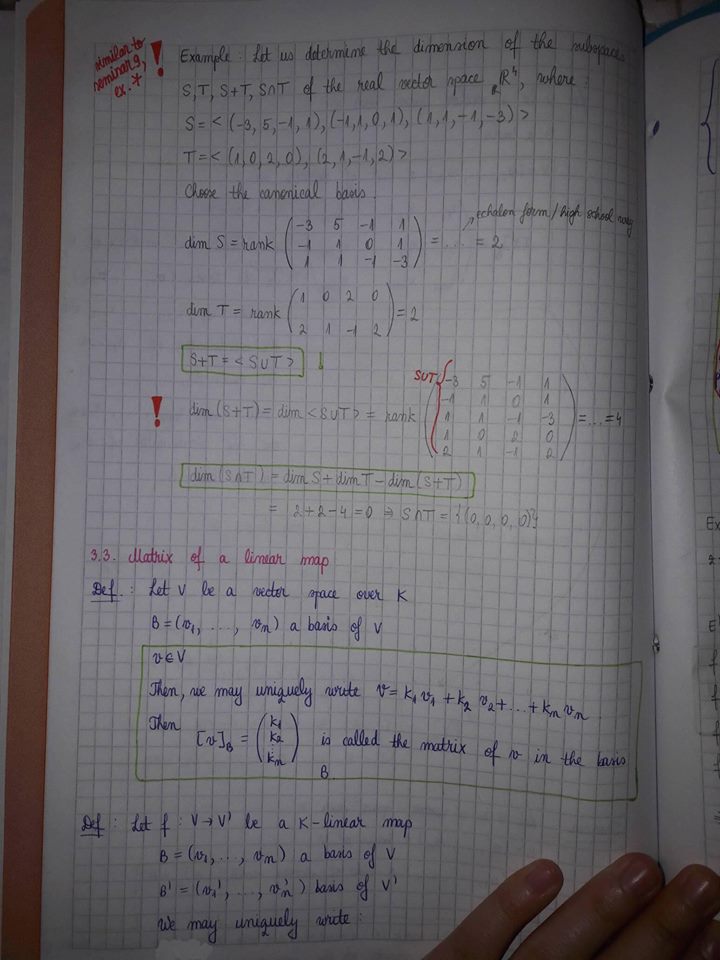 similar to
seminar 9,
ex. *
! Example: Let us determine the dimension of the subspaces
S, T, S+T, S∩T of the real vector space ᵣR⁴, where:
S = < (-3, 5, -1, 1), (-1, 1, 0, 1), (1, 1, -1, -3) >
T = < (1, 0, 2, 0), (2, 1, -1, 2) >
Choose the canonical basis.
echelon form / high school way
dim S = rank ( -3 5 -1 1
-1 1 0 1
1 1 -1 -3 ) = .... = 2
dim T = rank ( 1 0 2 0
2 1 -1 2 ) = 2
S+T = < S∪T > !
! dim (S+T) = dim < S∪T > = rank S∪T { ( -3 5 -1 1
-1 1 0 1
1 1 -1 -3
1 0 2 0
2 1 -1 2 ) = .... = 4
dim (S∩T) = dim S + dim T - dim (S+T)
= 2+2-4=0 ⇒ S∩T = {(0, 0, 0, 0)}
3.3. Matrix of a linear map
Def.: Let V be a vector space over K
B = (v₁, ..., vₙ) a basis of V
v ∈ V
Then, we may uniquely write v = k₁v₁ + k₂v₂ + ... + kₙvₙ.
Then [v]_B = ( k₁
k₂
⋮
kₙ ) is called the matrix of v in the basis
B
Def: Let f: V → V' be a K-linear map
B = (v₁, ..., vₙ) a basis of V
B' = (v₁', ..., vₙ') basis of V'
We may uniquely write: